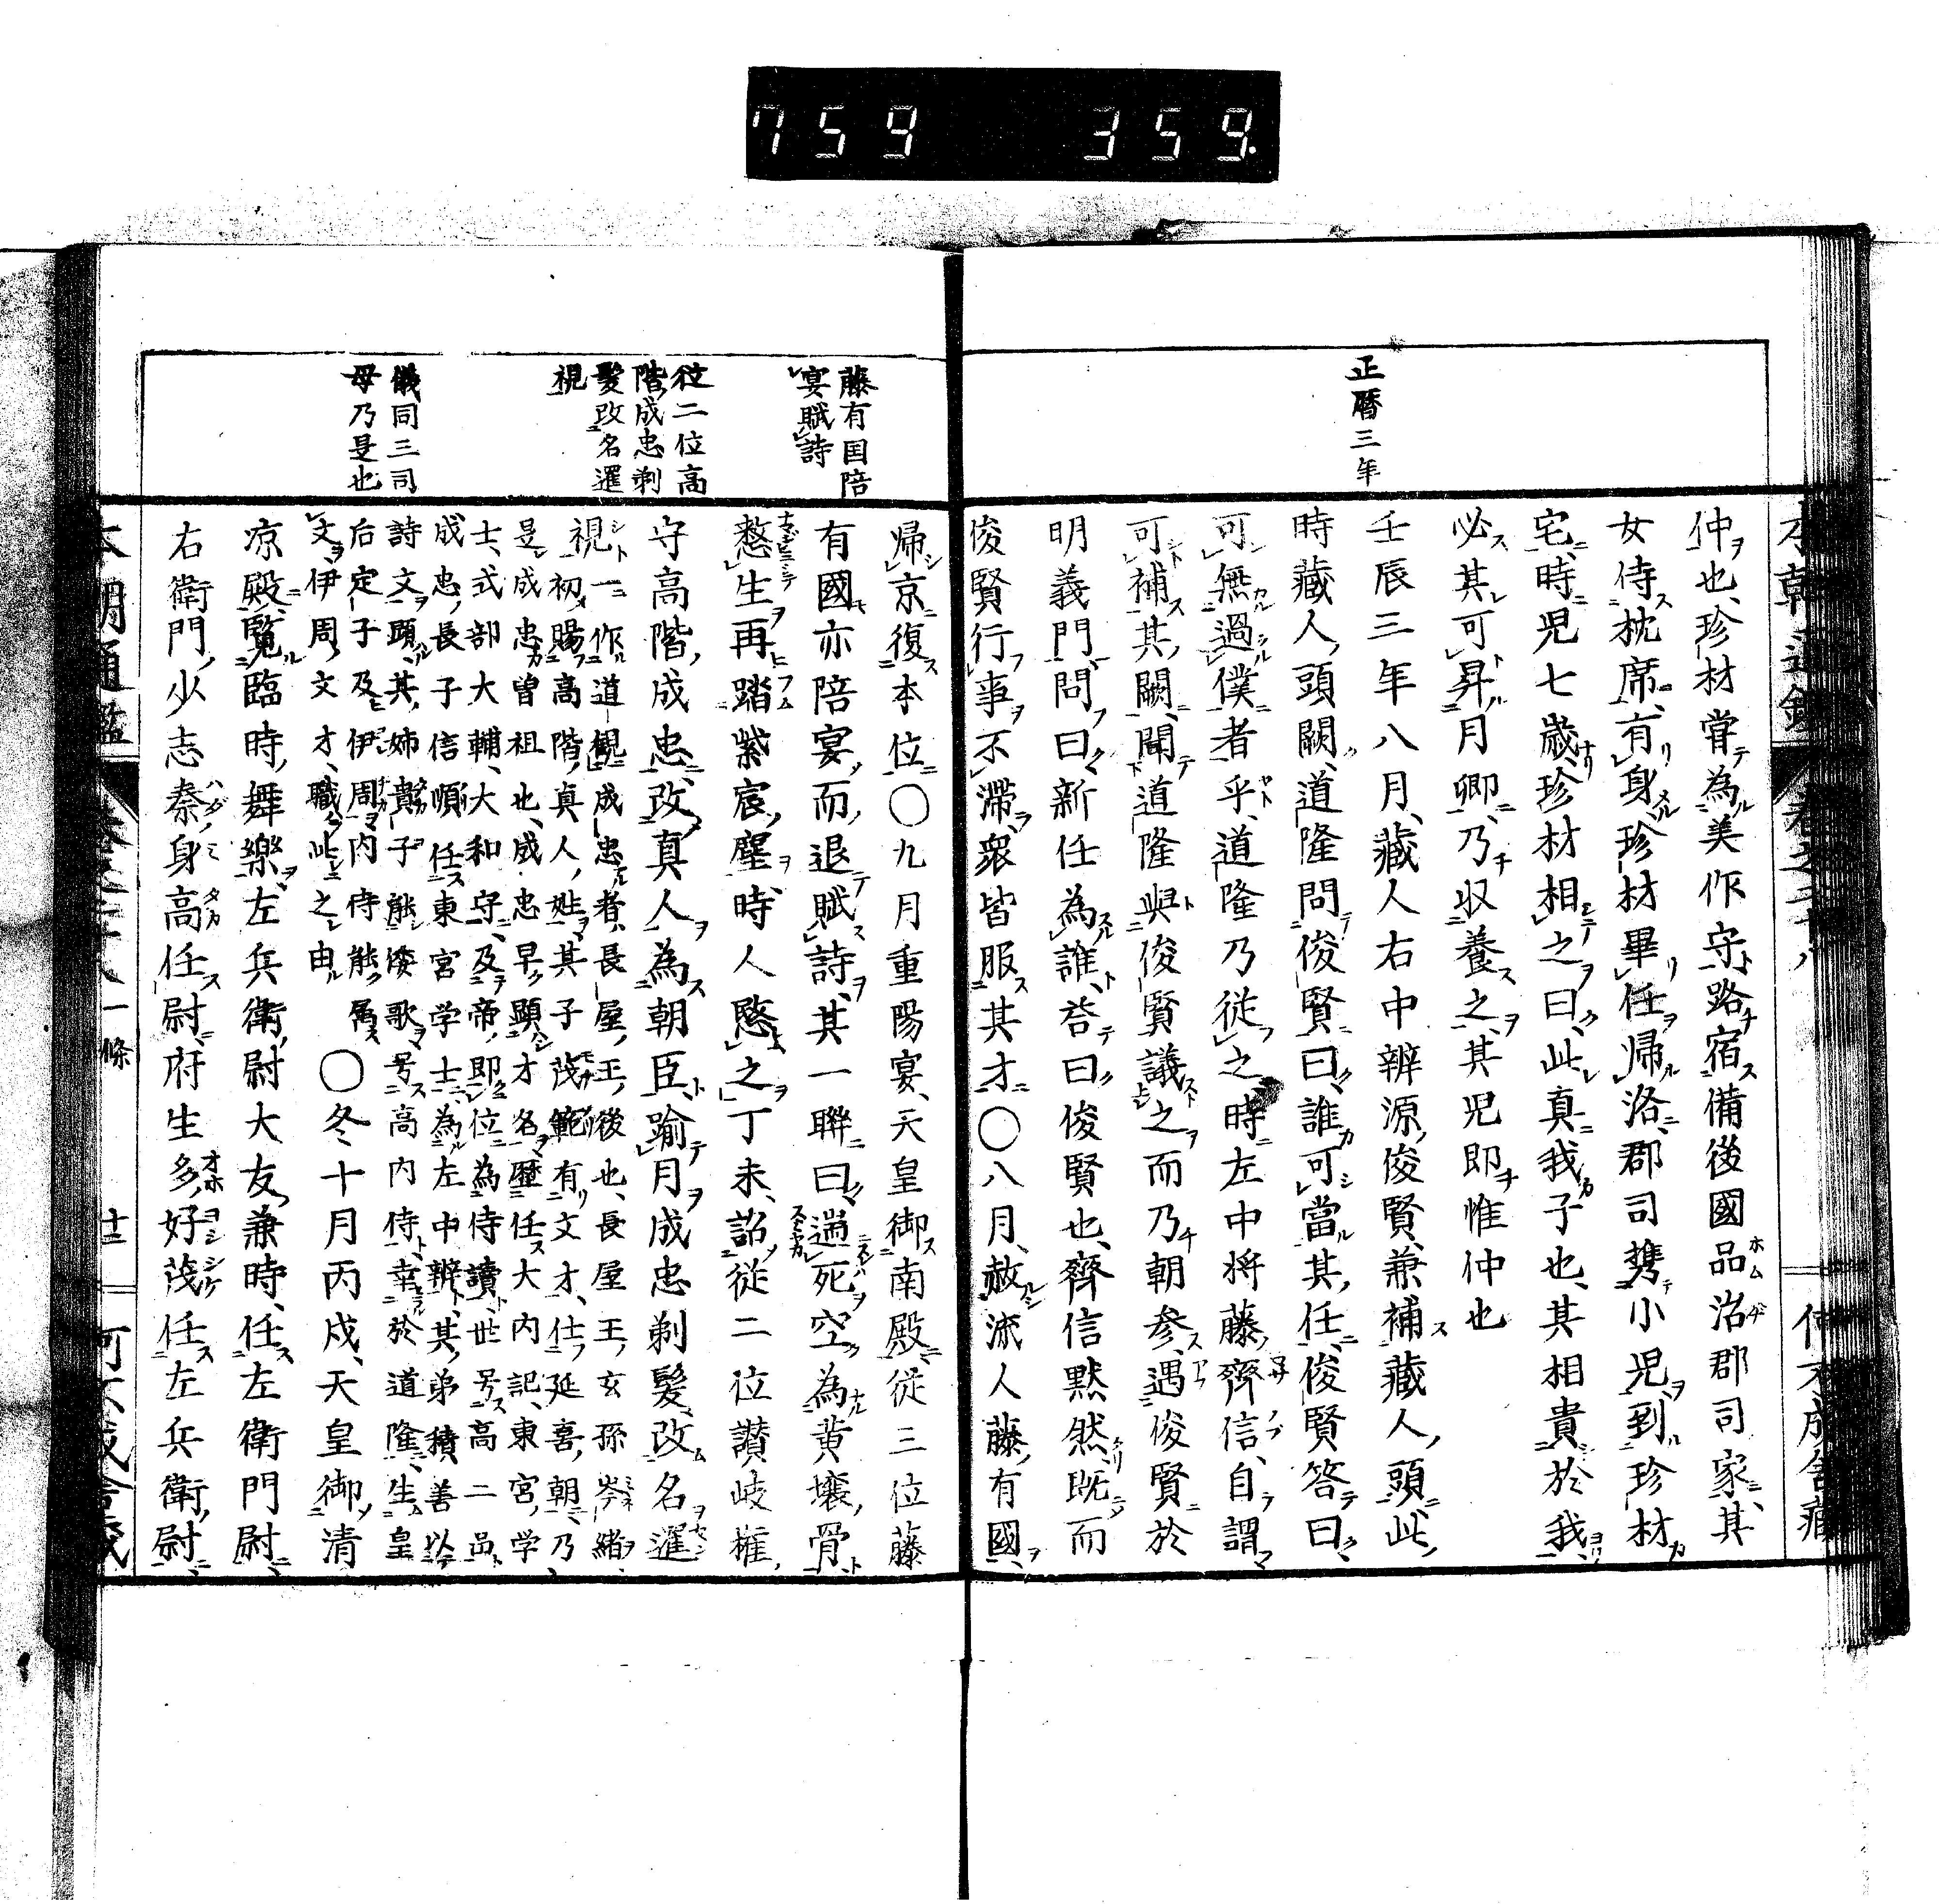 759 359.
正暦三年
仲也、珍材嘗為美作守、路宿備後國品治郡司家、其
女侍枕席、有身、珍材畢任歸洛、郡司携小児、到珍材
宅、時児七歳、珍材相之曰、此真我子也、其相貴於我、
必其可昇月卿、乃収養之、其児即惟仲也
壬辰三年八月、藏人右中辨源俊賢、兼補藏人頭、此
時藏人頭闕、道隆問俊賢曰、誰可當其任、俊賢答曰、
可無過僕者乎、道隆乃従之、時左中将藤齊信、自謂
可補其闕、聞道隆與俊賢議之而乃朝参、遇俊賢於
明義門、問曰、新任為誰、答曰俊賢也、齊信黙然、既而
俊賢行事不滞、衆皆服其才○八月、赦流人藤有國、
藤有国陪
宴賦詩
従二位高
階成忠剃
髪改名暹
視
儀同三司
母乃是也
歸京復本位○九月重陽宴、天皇御南殿、従三位藤
有國亦陪宴、而退賦詩、其一聯曰、遁死空為黄壌骨、
憖生再踏紫宸塵、時人愍之、丁未、詔従二位讃岐権
守高階成忠、改真人為朝臣、踰月成忠剃髪、改名暹
視一作道観、成忠者、長屋王後也、長屋王玄孫岑緒、
初賜高階真人姓、其子茂範有文才、仕延喜朝、乃
是成忠曽祖也、成忠早顕才名、歴任大内記、東宮学
士、式部大輔、大和守、及帝即位為侍讀、世号高二品、
成忠長子信順任東宮学士、為左中辨、其弟積善以
詩文顕、其姉貴子能倭歌、号高内侍、幸於道隆、生皇
后定子及伊周、内侍能属
文、伊周文才、職此之由 ○冬十月丙戌、天皇御清
凉殿、覧臨時舞樂、左兵衛尉大友兼時、任左衛門尉、
右衛門少志秦身高任尉、府生多好茂任左兵衛尉、
本朝通鑑
一條
十二